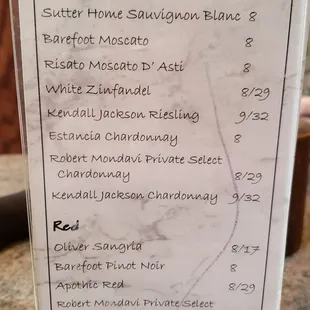 Sutter Home Sauvignon Blanc 8
Barefoot Moscato 8
Risato Moscato D' Asti 8
White Zinfandel 8/29
Kendall Jackson Riesling 9/32
Estancia Chardonnay 8
Robert Mondavi Private Select
Chardonnay 8/29
Kendall Jackson Chardonnay 9/32
Red
Oliver Sangria 8/17
Barefoot Pinot Noir 8
Apothic Red 8/29
Robert Mondavi Private Select